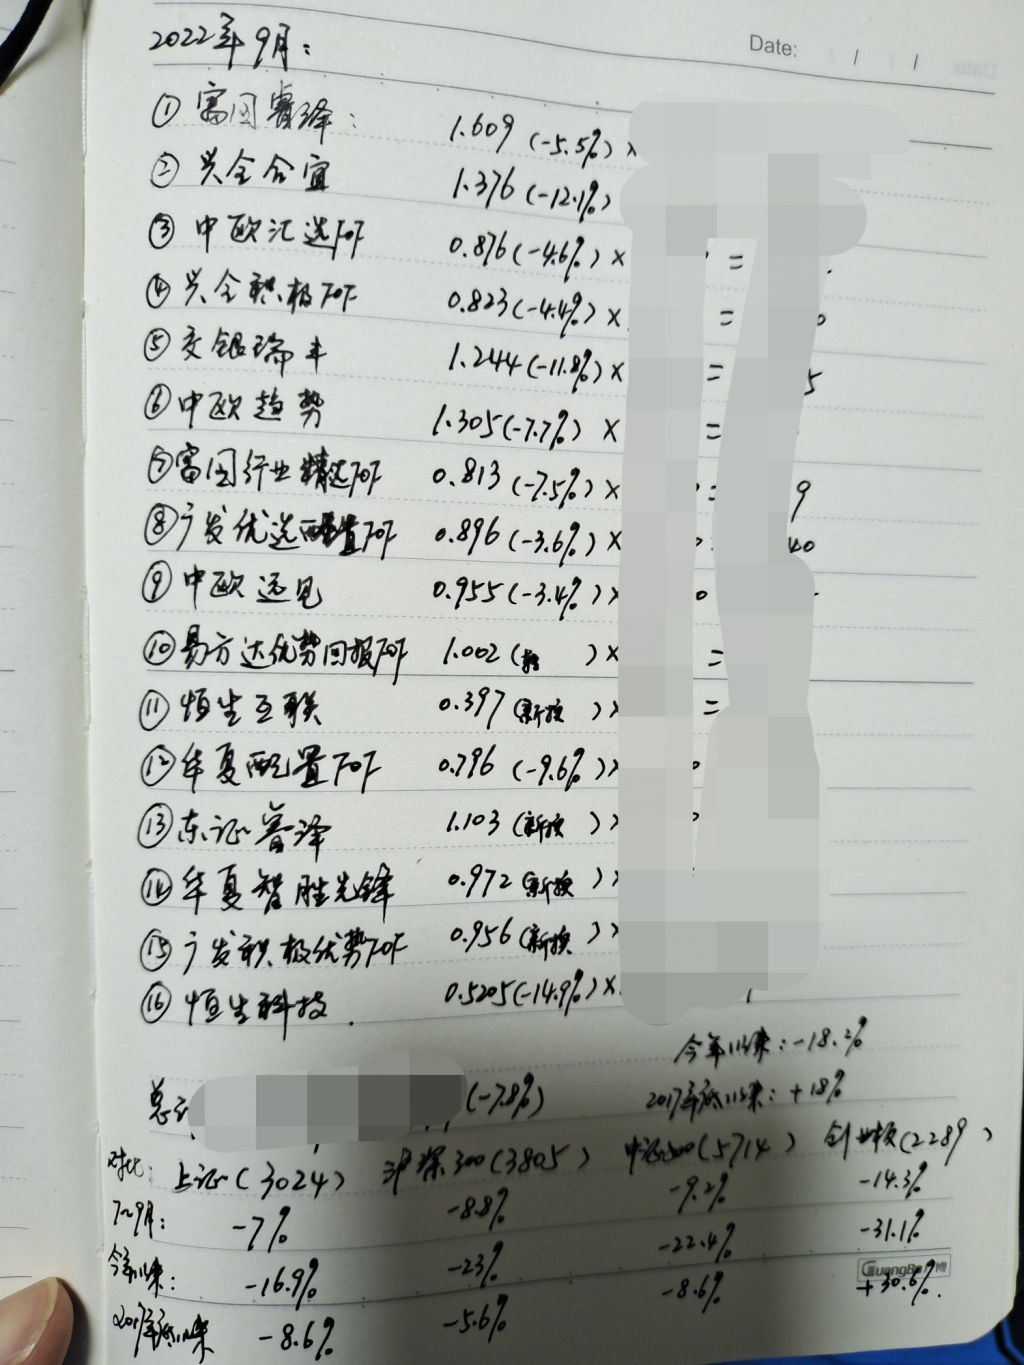 Date: / /
2022年9月:
① 富国睿泽: 1.609 (-5.5%) ×
② 兴全合宜 1.376 (-12.1%)
③ 中欧汇选FOF 0.876 (-4.6%) × =
④ 兴全积极FOF 0.823 (-4.4%) × =
⑤ 交银瑞丰 1.244 (-11.8%) × = 5
⑥ 中欧趋势 1.305 (-7.7%) × =
⑦ 富国行业精选FOF 0.813 (-7.5%) × = 9
⑧ 广发优选配置FOF 0.896 (-3.6%) × 40
⑨ 中欧远见 0.955 (-3.4%) ×
⑩ 易方达优势回报FOF 1.002 ( ) × =
⑪ 恒生互联 0.397 (新换) × =
⑫ 华夏配置FOF 0.796 (-9.6%) ×
⑬ 东证睿泽 1.103 (新换) ×
⑭ 华夏智胜先锋 0.972 (新换) ×
⑮ 广发积极优势FOF 0.956 (新换) ×
⑯ 恒生科技. 0.5205 (-14.9%) ×
今年以来: -18.2%
总 (-7.8%) 2017年底以来: +18%
对比: 上证 (3024) 沪深300 (3805) 中证500 (5714) 创业板 (2289)
7~9月: -7% -8.8% -9.2% -14.3%
今年以来: -16.9% -23% -22.4% -31.1%
GuangBo 博
2017年底以来 -8.6% -5.6% -8.6% +30.6%.